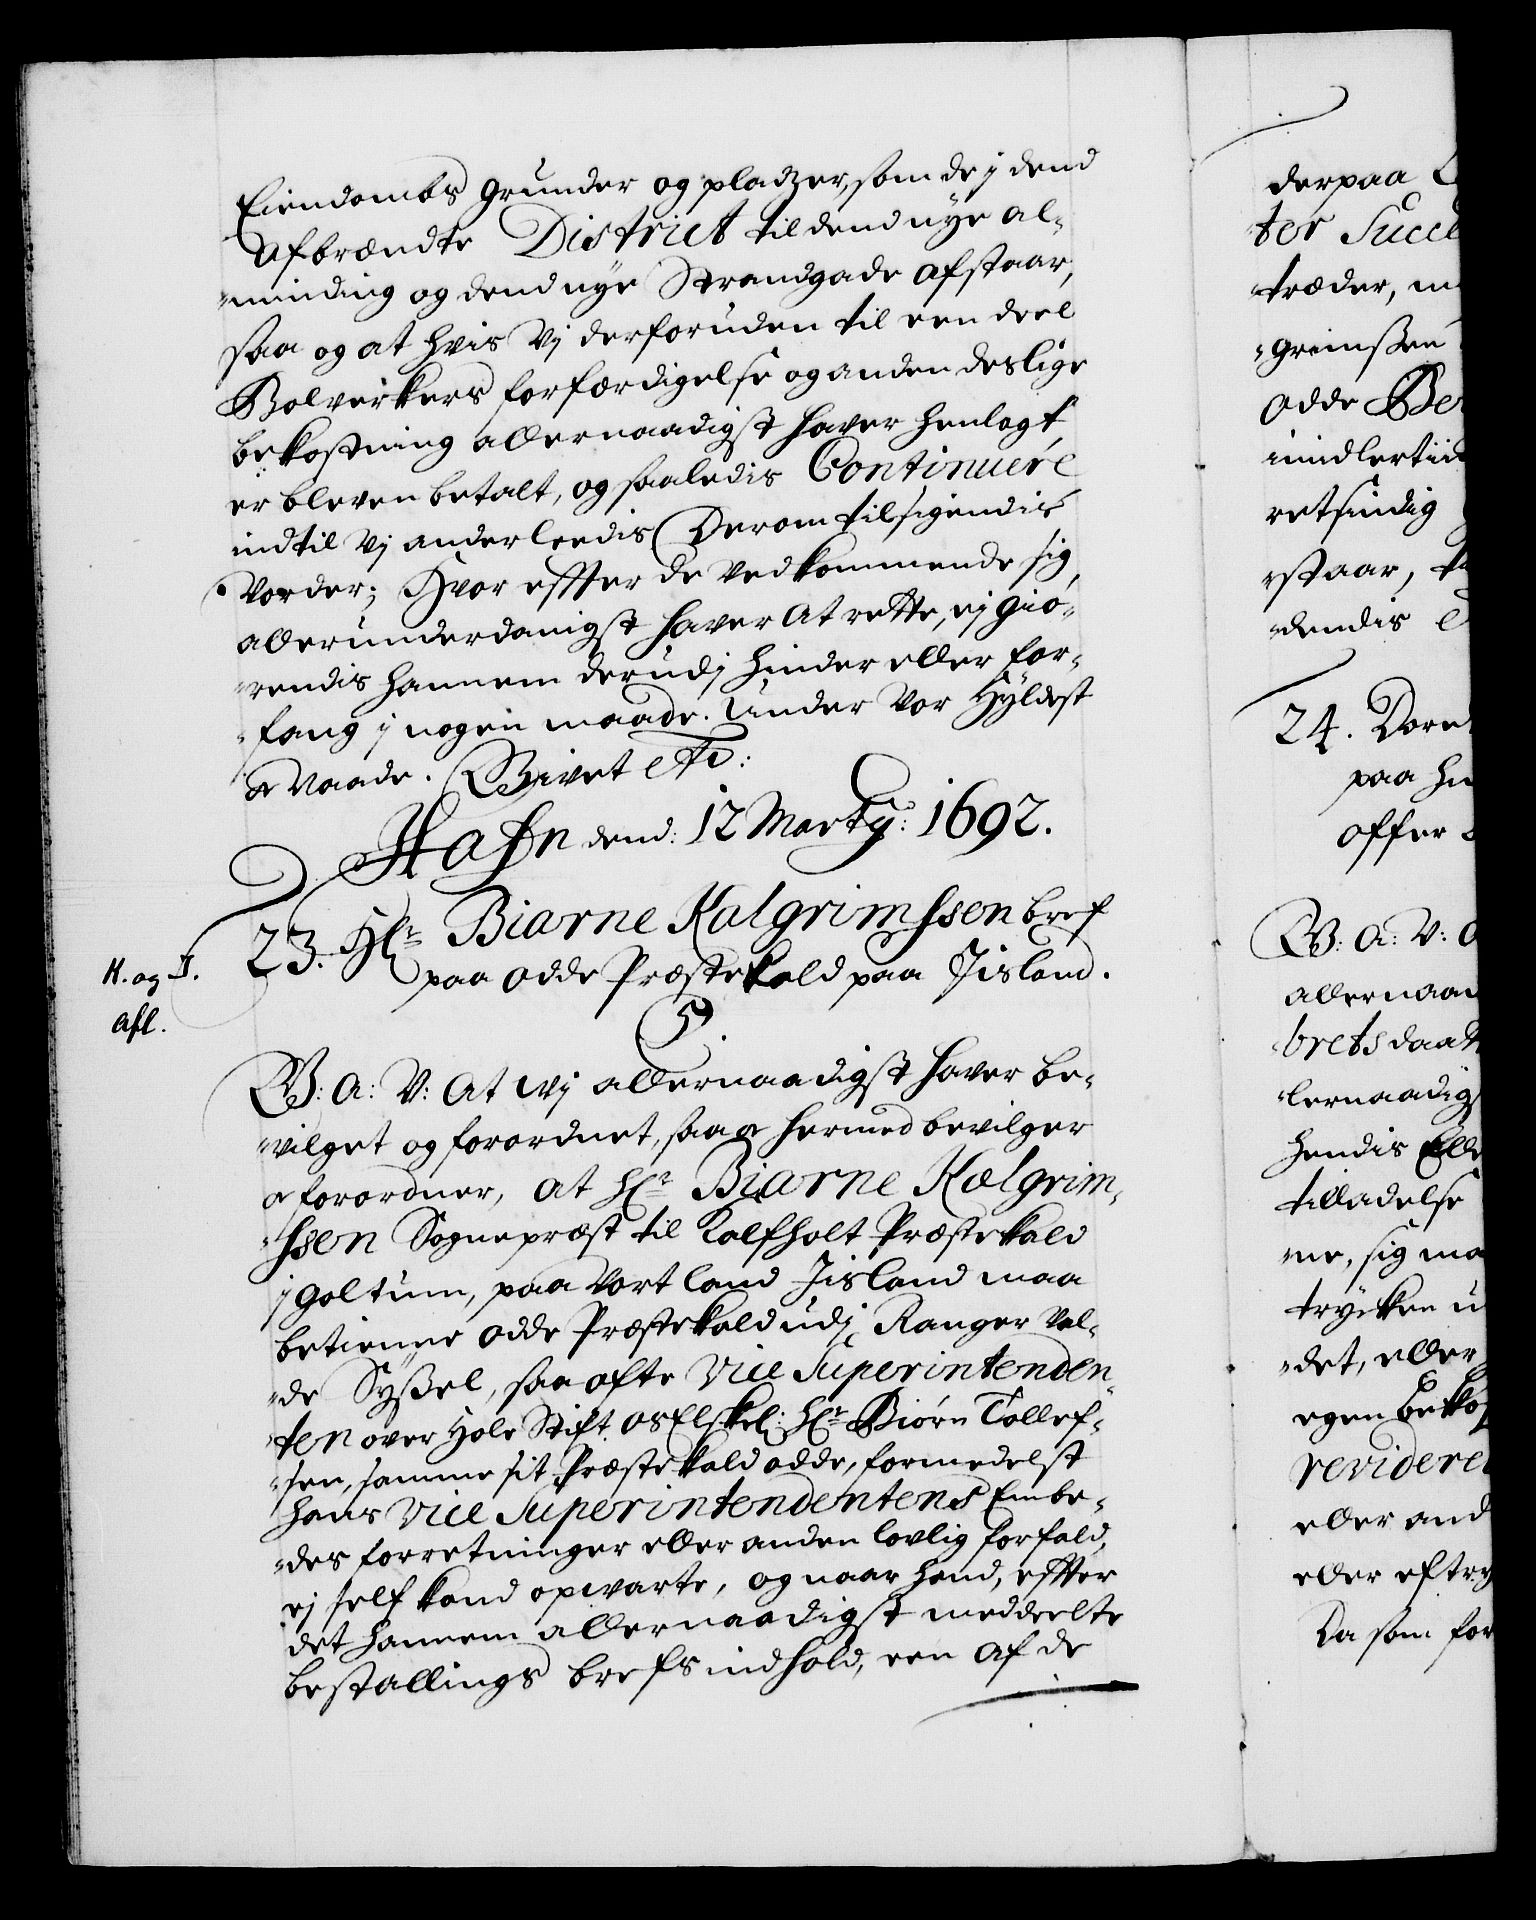 Eiendombs grunder og pladzer, som de j dend
Afbrændte District til dend nye al-
-minding og dend nye Strandgade afstaar,
saa og at hvis Vj derforuden til een deel
Bolverkers forfærdigelse og anden deslige
bekostning allernaadigst hafver henlagt,
er bleven betalt, og saaledis Continuere
indtil Vj anderleedis Derom tilsigendis
Vorder; Hvor effter de Vedkommende sig,
allerunderdanigst hafver At rette, ej giø-
-rendis hannem derudj hinder eller for-
-fang j nogen maade. Under Vor Hyldest
& Naade. Givet etc:
Hafn dend: 12 Martij: 1692.
23. Hr: Biarne Halgrimssen bref
paa Odde Præstekald paa Jisland.
K. og I.
Afl.
G. A: V: At Wj allernaadigst hafver be-
-vilget og forordnet, saa & hermed bevilger
& forordner, at Hr: Biarne Halgrim-
-ssen Sognepræst til Kalfholt Præstekald
j Holtum, paa Vort land Jisland maa
betienne Odde Præstekald udj Ranger Val-
-de Syßel, saa ofte Vice Superintenden-
-ten over Hole Stift Os Elskel: Hr: Biørn Tollef-
-sen, samme sit Præstekald Odde, formedelst
hans Vice Superintendentens Embe-
-des forretninger eller anden lovlig forfald,
ej self kand opwarte, og naar hand, effter
det hannem allernaadigst meddeelte
bestallings brefs indhold, een af de
derpaa
-ter Succe
træder, m
-grimssen
Odde Be
imidlertiid
retsindig
-staar,
-dendis
24. Dore
paa hu
offer
G: A: V:
allernaa
-brets daat
-lernaadigs
hendis Elle
tilladelse
-ne, sig ma
trycken u
-det, eller
egen bekos
revidere
eller and
eller eftery
Da som for